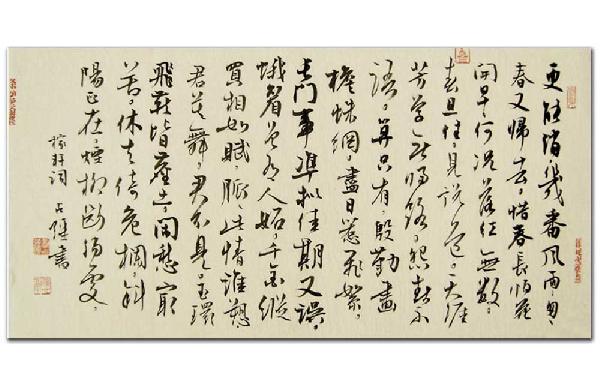 更能消幾番風雨匆々
春又歸去惜春長怕花
開早何況落紅無數
春且住見說道天涯
芳草無歸路怨春不
語算只有殷勤畫
檐蛛網盡日惹飛絮
長門事準擬佳期又誤
蛾眉曾有人妬千金縱
買相如賦脈々此情誰愬
君莫舞君不見玉環
飛燕皆塵土閑愁最
苦休去倚危欄斜
陽正在煙柳斷腸處
稼軒詞 書